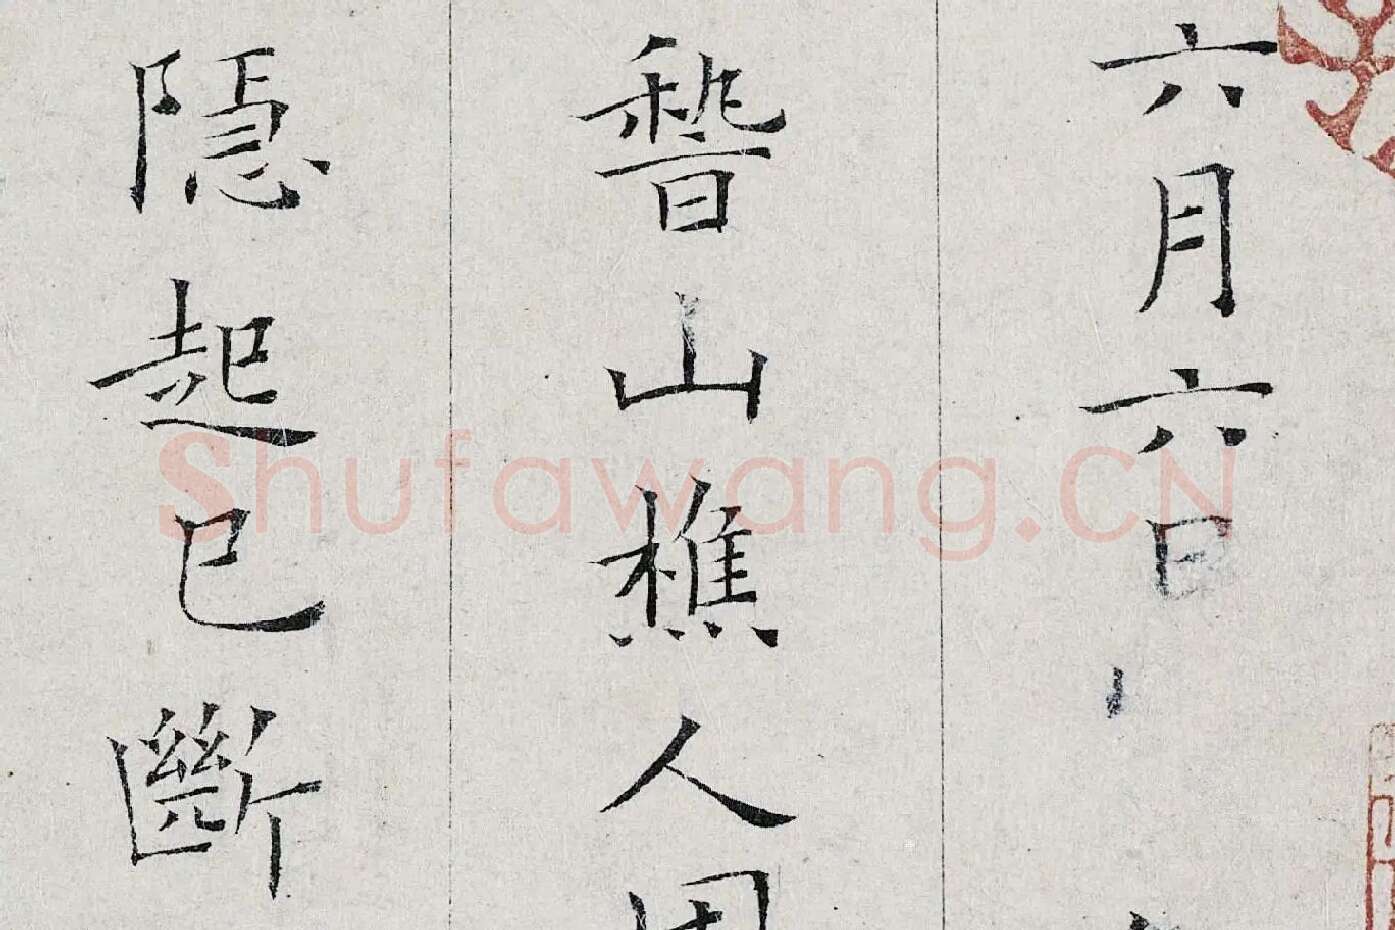 六月六日
稽山樵人
隐起已斷
Shufawang.CN